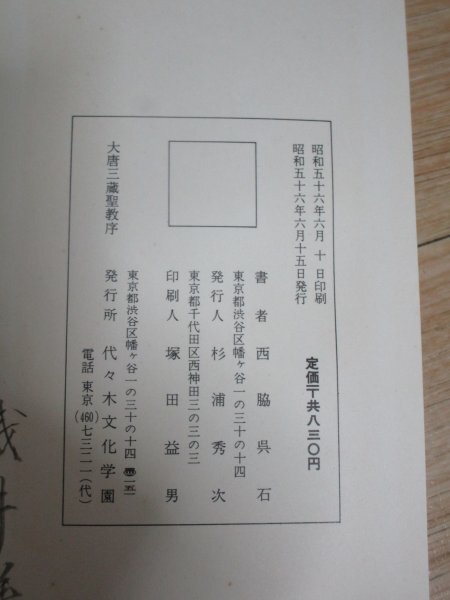 昭和五十六年六月 十 日印刷
昭和五十六年六月十五日発行
定価〒共八三〇円
書者 西脇呉石
東京都渋谷区幡ヶ谷一の三十の十四
発行人 杉浦秀次
東京都千代田区西神田三の三の三
印刷人 塚田益男
大唐三蔵聖教序
東京都渋谷区幡ヶ谷一の三十の十四
発行所 代々木文化学園
電話 東京(460)七三二一(代)